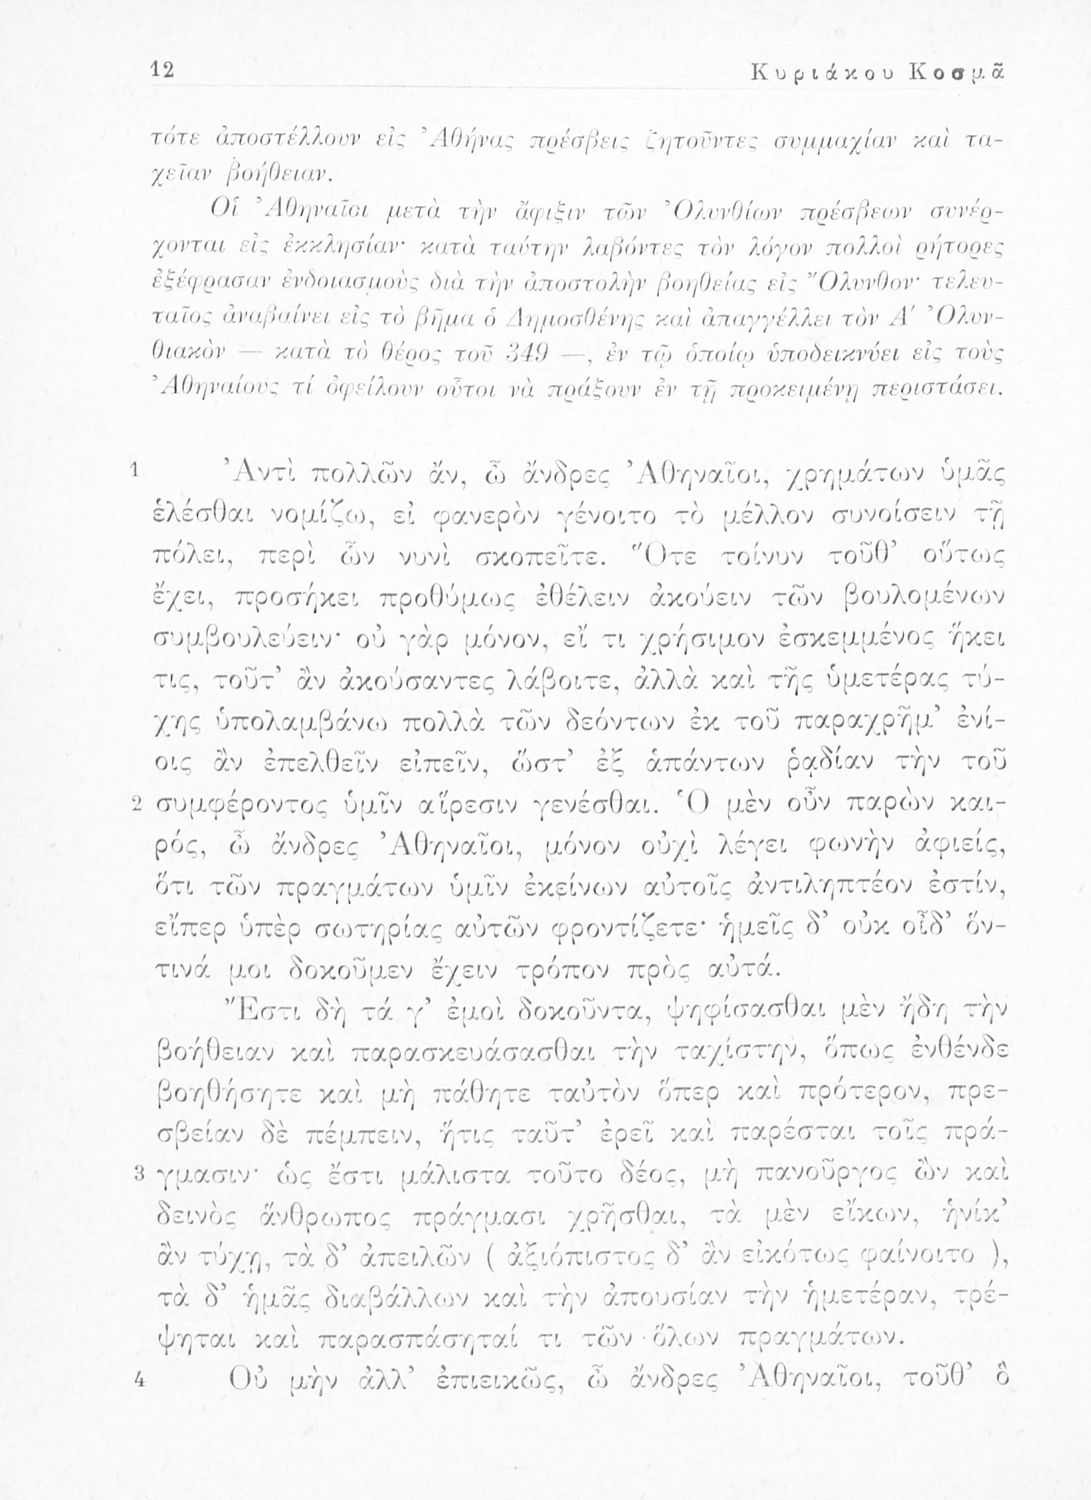 12 Κυριάκου Κοσμᾶ
τότε ἀποστέλλουν εἰς Ἀθήνας πρέσβεις ζητοῦντες συμμαχίαν καὶ τα-
χεῖαν βοήθειαν.
Οἱ Ἀθηναῖοι μετὰ τὴν ἄφιξιν τῶν Ὀλυνθίων πρέσβεων συνέρ-
χονται εἰς ἐκκλησίαν· κατὰ ταύτην λαβόντες τὸν λόγον πολλοὶ ρήτορες
ἐξέφρασαν ἐνδοιασμοὺς διὰ τὴν ἀποστολὴν βοηθείας εἰς Ὄλυνθον· τελευ-
ταῖος ἀναβαίνει εἰς τὸ βῆμα ὁ Δημοσθένης καὶ ἀπαγγέλλει τὸν Α΄ Ὀλυν-
θιακὸν — κατὰ τὸ θέρος τοῦ 349 —, ἐν τῷ ὁποίῳ ὑποδεικνύει εἰς τοὺς
Ἀθηναίους τί ὀφείλουν οὗτοι νὰ πράξουν ἐν τῇ προκειμένῃ περιστάσει.
1 Ἀντὶ πολλῶν ἄν, ὦ ἄνδρες Ἀθηναῖοι, χρημάτων ὑμᾶς
ἑλέσθαι νομίζω, εἰ φανερὸν γένοιτο τὸ μέλλον συνοίσειν τῇ
πόλει, περὶ ὧν νυνὶ σκοπεῖτε. Ὅτε τοίνυν τοῦθ’ οὕτως
ἔχει, προσήκει προθύμως ἐθέλειν ἀκούειν τῶν βουλομένων
συμβουλεύειν· οὐ γὰρ μόνον, εἴ τι χρήσιμον ἐσκεμμένος ἥκει
τις, τοῦτ’ ἂν ἀκούσαντες λάβοιτε, ἀλλὰ καὶ τῆς ὑμετέρας τύ-
χης ὑπολαμβάνω πολλὰ τῶν δεόντων ἐκ τοῦ παραχρῆμ’ ἐνί-
οις ἂν ἐπελθεῖν εἰπεῖν, ὥστ’ ἐξ ἁπάντων ῥᾳδίαν τὴν τοῦ
2 συμφέροντος ὑμῖν αἵρεσιν γενέσθαι. Ὁ μὲν οὖν παρὼν και-
ρός, ὦ ἄνδρες Ἀθηναῖοι, μόνον οὐχὶ λέγει φωνὴν ἀφιείς,
ὅτι τῶν πραγμάτων ὑμῖν ἐκείνων αὐτοῖς ἀντιληπτέον ἐστίν,
εἴπερ ὑπὲρ σωτηρίας αὐτῶν φροντίζετε· ἡμεῖς δ’ οὐκ οἶδ’ ὅν-
τινά μοι δοκοῦμεν ἔχειν τρόπον πρὸς αὐτά.
Ἔστι δὴ τά γ’ ἐμοὶ δοκοῦντα, ψηφίσασθαι μὲν ἤδη τὴν
βοήθειαν καὶ παρασκευάσασθαι τὴν ταχίστην, ὅπως ἐνθένδε
βοηθήσητε καὶ μὴ πάθητε ταὐτὸν ὅπερ καὶ πρότερον, πρε-
σβείαν δὲ πέμπειν, ἥτις ταῦτ’ ἐρεῖ καὶ παρέσται τοῖς πρά-
3 γμασιν· ὡς ἔστι μάλιστα τοῦτο δέος, μὴ πανοῦργος ὢν καὶ
δεινὸς ἄνθρωπος πράγμασι χρῆσθαι, τὰ μὲν εἴκων, ἡνίκ’
ἂν τύχῃ, τὰ δ’ ἀπειλῶν ( ἀξιόπιστος δ’ ἂν εἰκότως φαίνοιτο ),
τὰ δ’ ἡμᾶς διαβάλλων καὶ τὴν ἀπουσίαν τὴν ἡμετέραν, τρέ-
ψηται καὶ παρασπάσηταί τι τῶν ὅλων πραγμάτων.
4 Οὐ μὴν ἀλλ’ ἐπιεικῶς, ὦ ἄνδρες Ἀθηναῖοι, τοῦθ’ ὃ